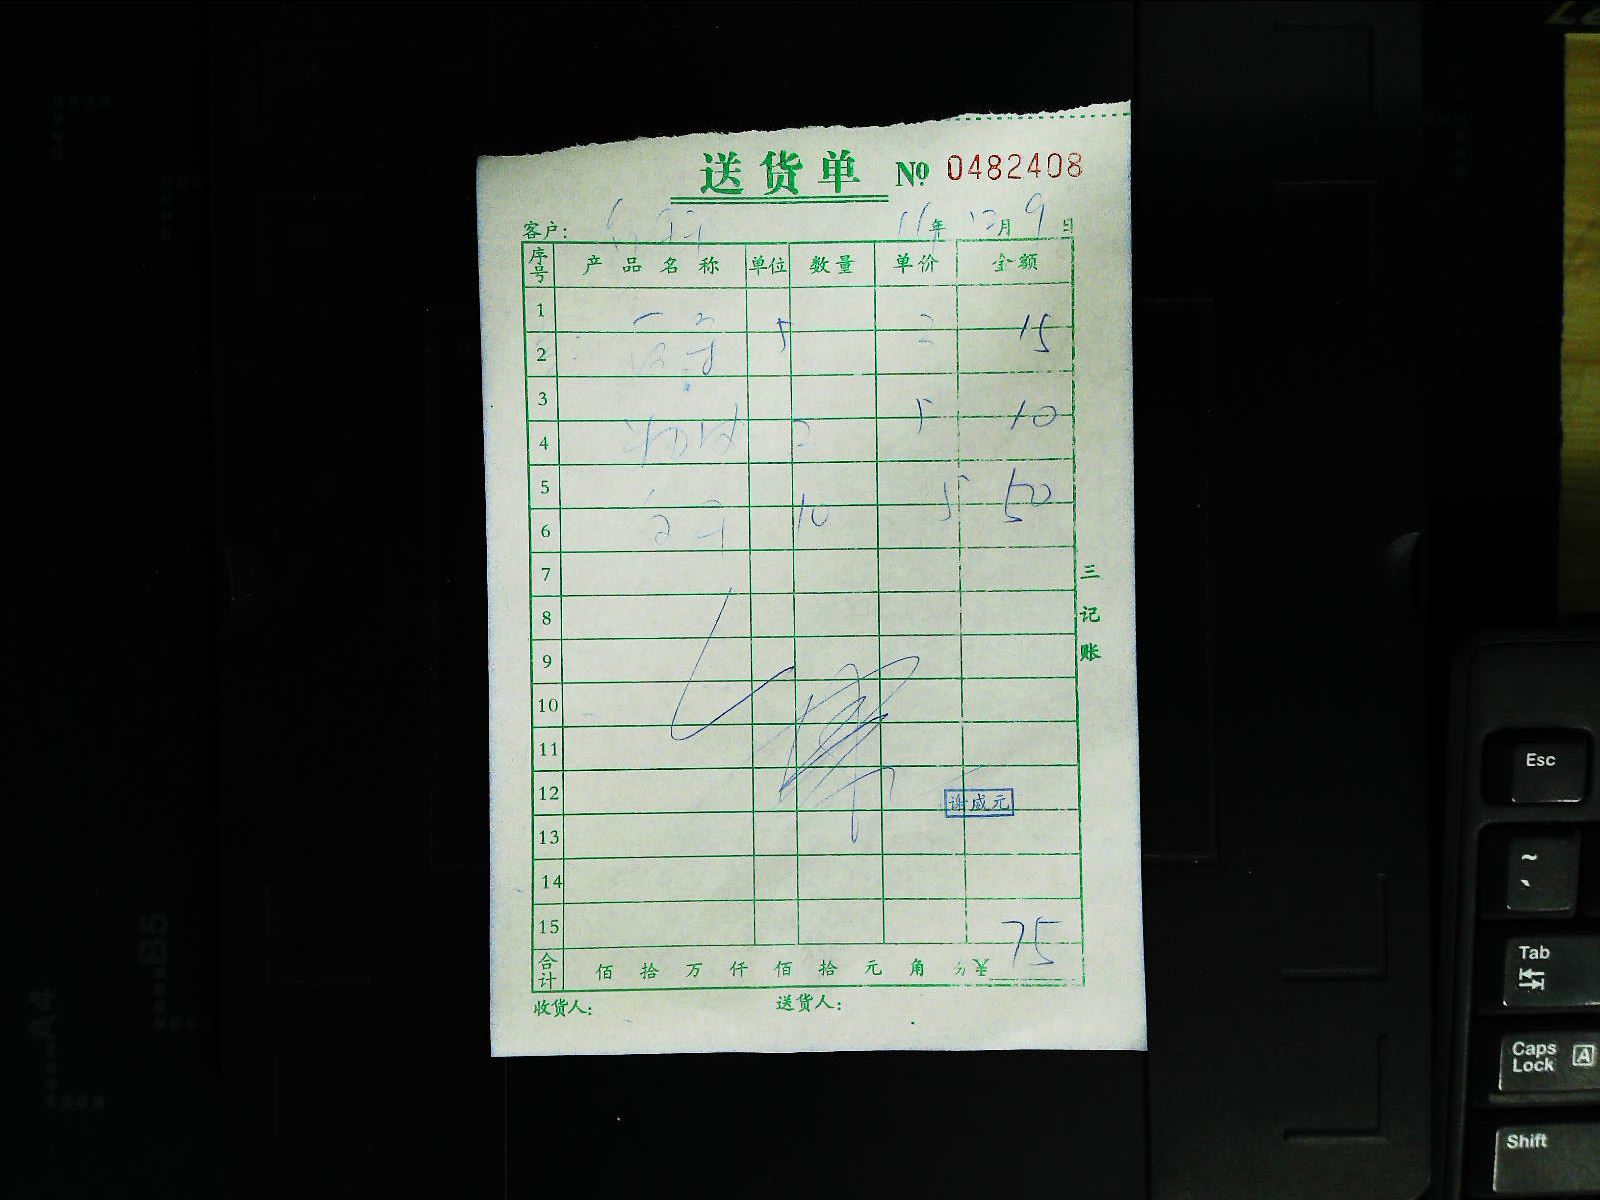 送货单 № 0482408
客户: 11年12月9日
序号 产品名称 单位 数量 单价 金额
1
2 5 15
3
4 2 5 10
5
6 10 5 50
7
8
9
10
11
12
谢咸元
13
14
15
合计 佰拾万仟佰拾元角分¥ 75
收货人: 送货人:
三记账
Esc
~
、
Tab
Caps Lock A
Shift
A4
B5